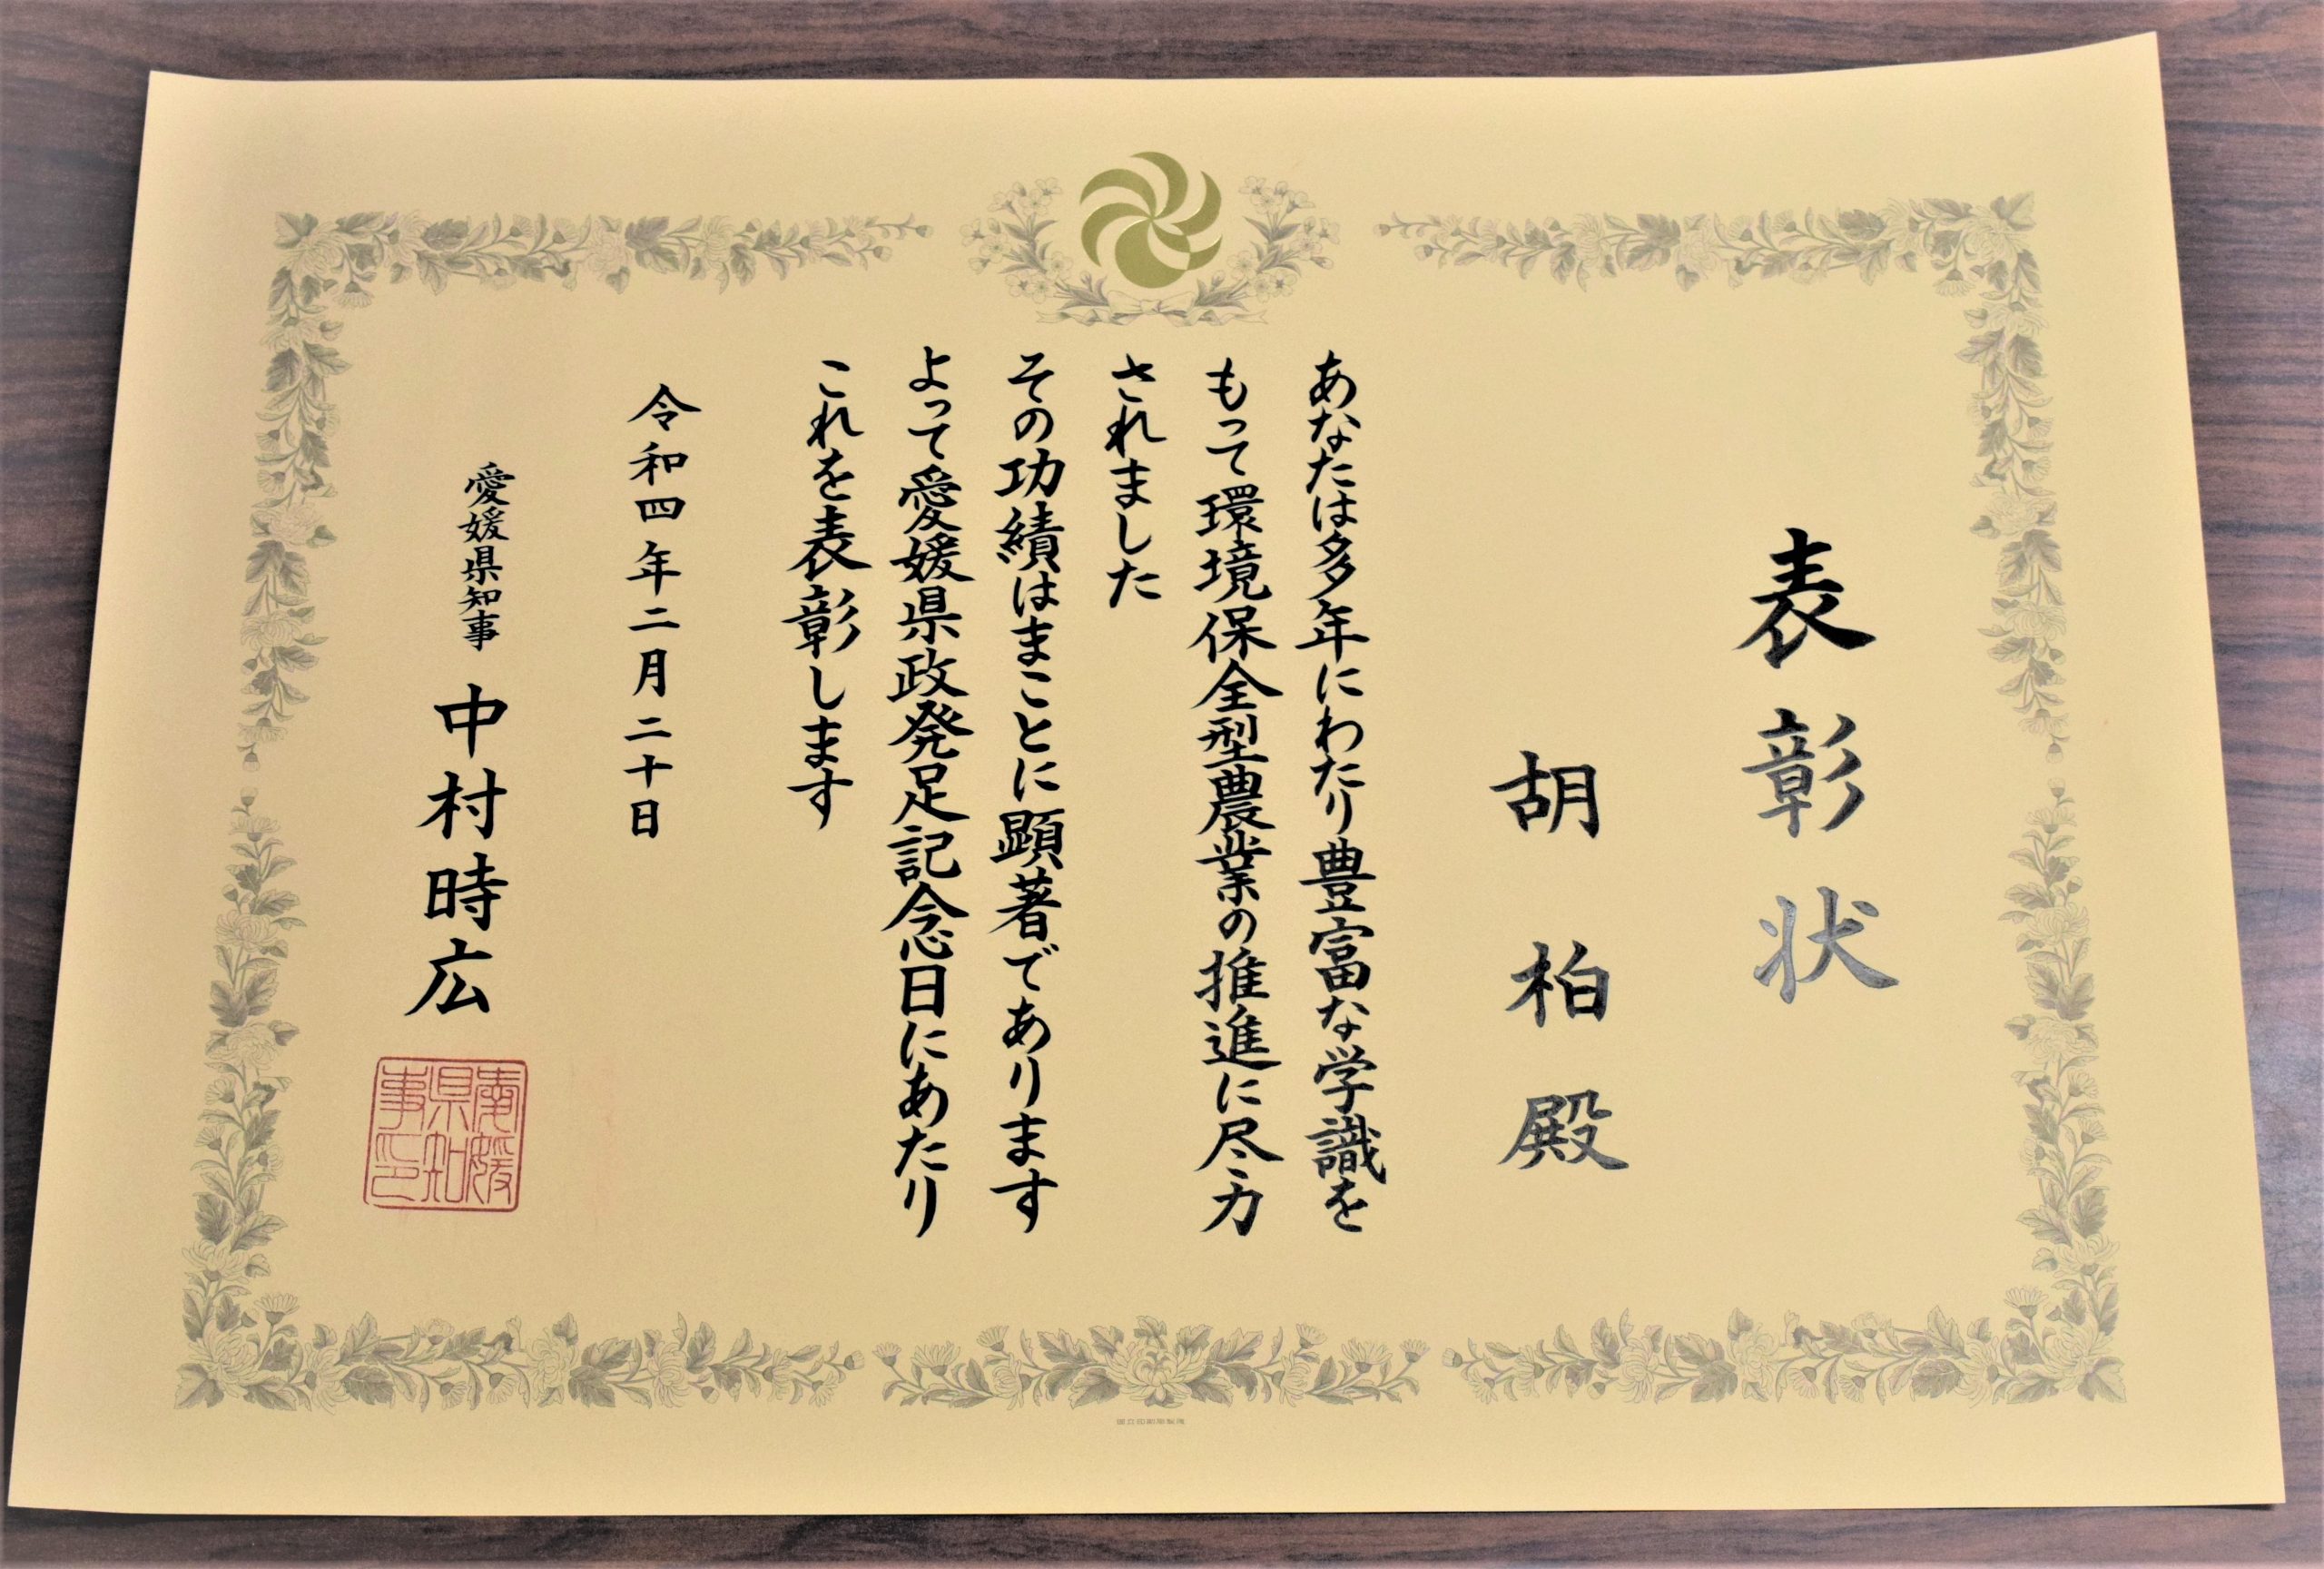 表彰状
胡柏殿
あなたは多年にわたり豊富な学識を
もって環境保全型農業の推進に尽力
されました
その功績はまことに顕著であります
よって愛媛県政発足記念日にあたり
これを表彰します
令和四年二月二十日
愛媛県知事 中村時広
愛媛県知事印
国立印刷局製造